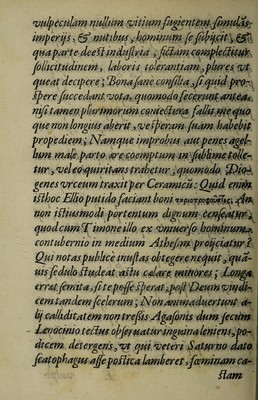 vulpeculam nullum vitium fugientem, simulás
imperijs, & nutibus, hominum se subijcit, &
qua parte deest industria, fictam complectitur
sollicitudinem, laboris tolerantiam, plures vt
queat decipere; Bona sane consilia, si quid pro-
spere succedant vota, quomodo fecerunt antea,
nisi tamen plurimorum coniectura fallit me quo
que non longius aberit, vt speram suam habebit
propediem; Namque improbus aut penes agel-
lum male parto ære coemptum in sublime tolle-
tur, vel eo quiritans trahetur, quomodo Dio-
genes vrceum traxit per Ceramicū: Quid enim
isthoc Ellio putido faciant boni An
non istiusmodi portentum dignum censeatur,
quod cum Timone illo ex vniuerso hominum
contubernio in medium Athesim proijciatur?
Qui notas publice inustas obtegere nequit, quā-
uis sedulo studeat astu cælare minores; Longa
errat semita, si te posse sperat, post Deum vindi-
cem tandem scelerum; Non animaduertunt a-
lij calliditatem non tressis Agasonis dum secum
Lenocinio tectus obseruatur inguina leniens, po-
dicem detergens, vt qui veteri Saturno dato
scatophagus asse postica lamberet, fœminam ca-
stam